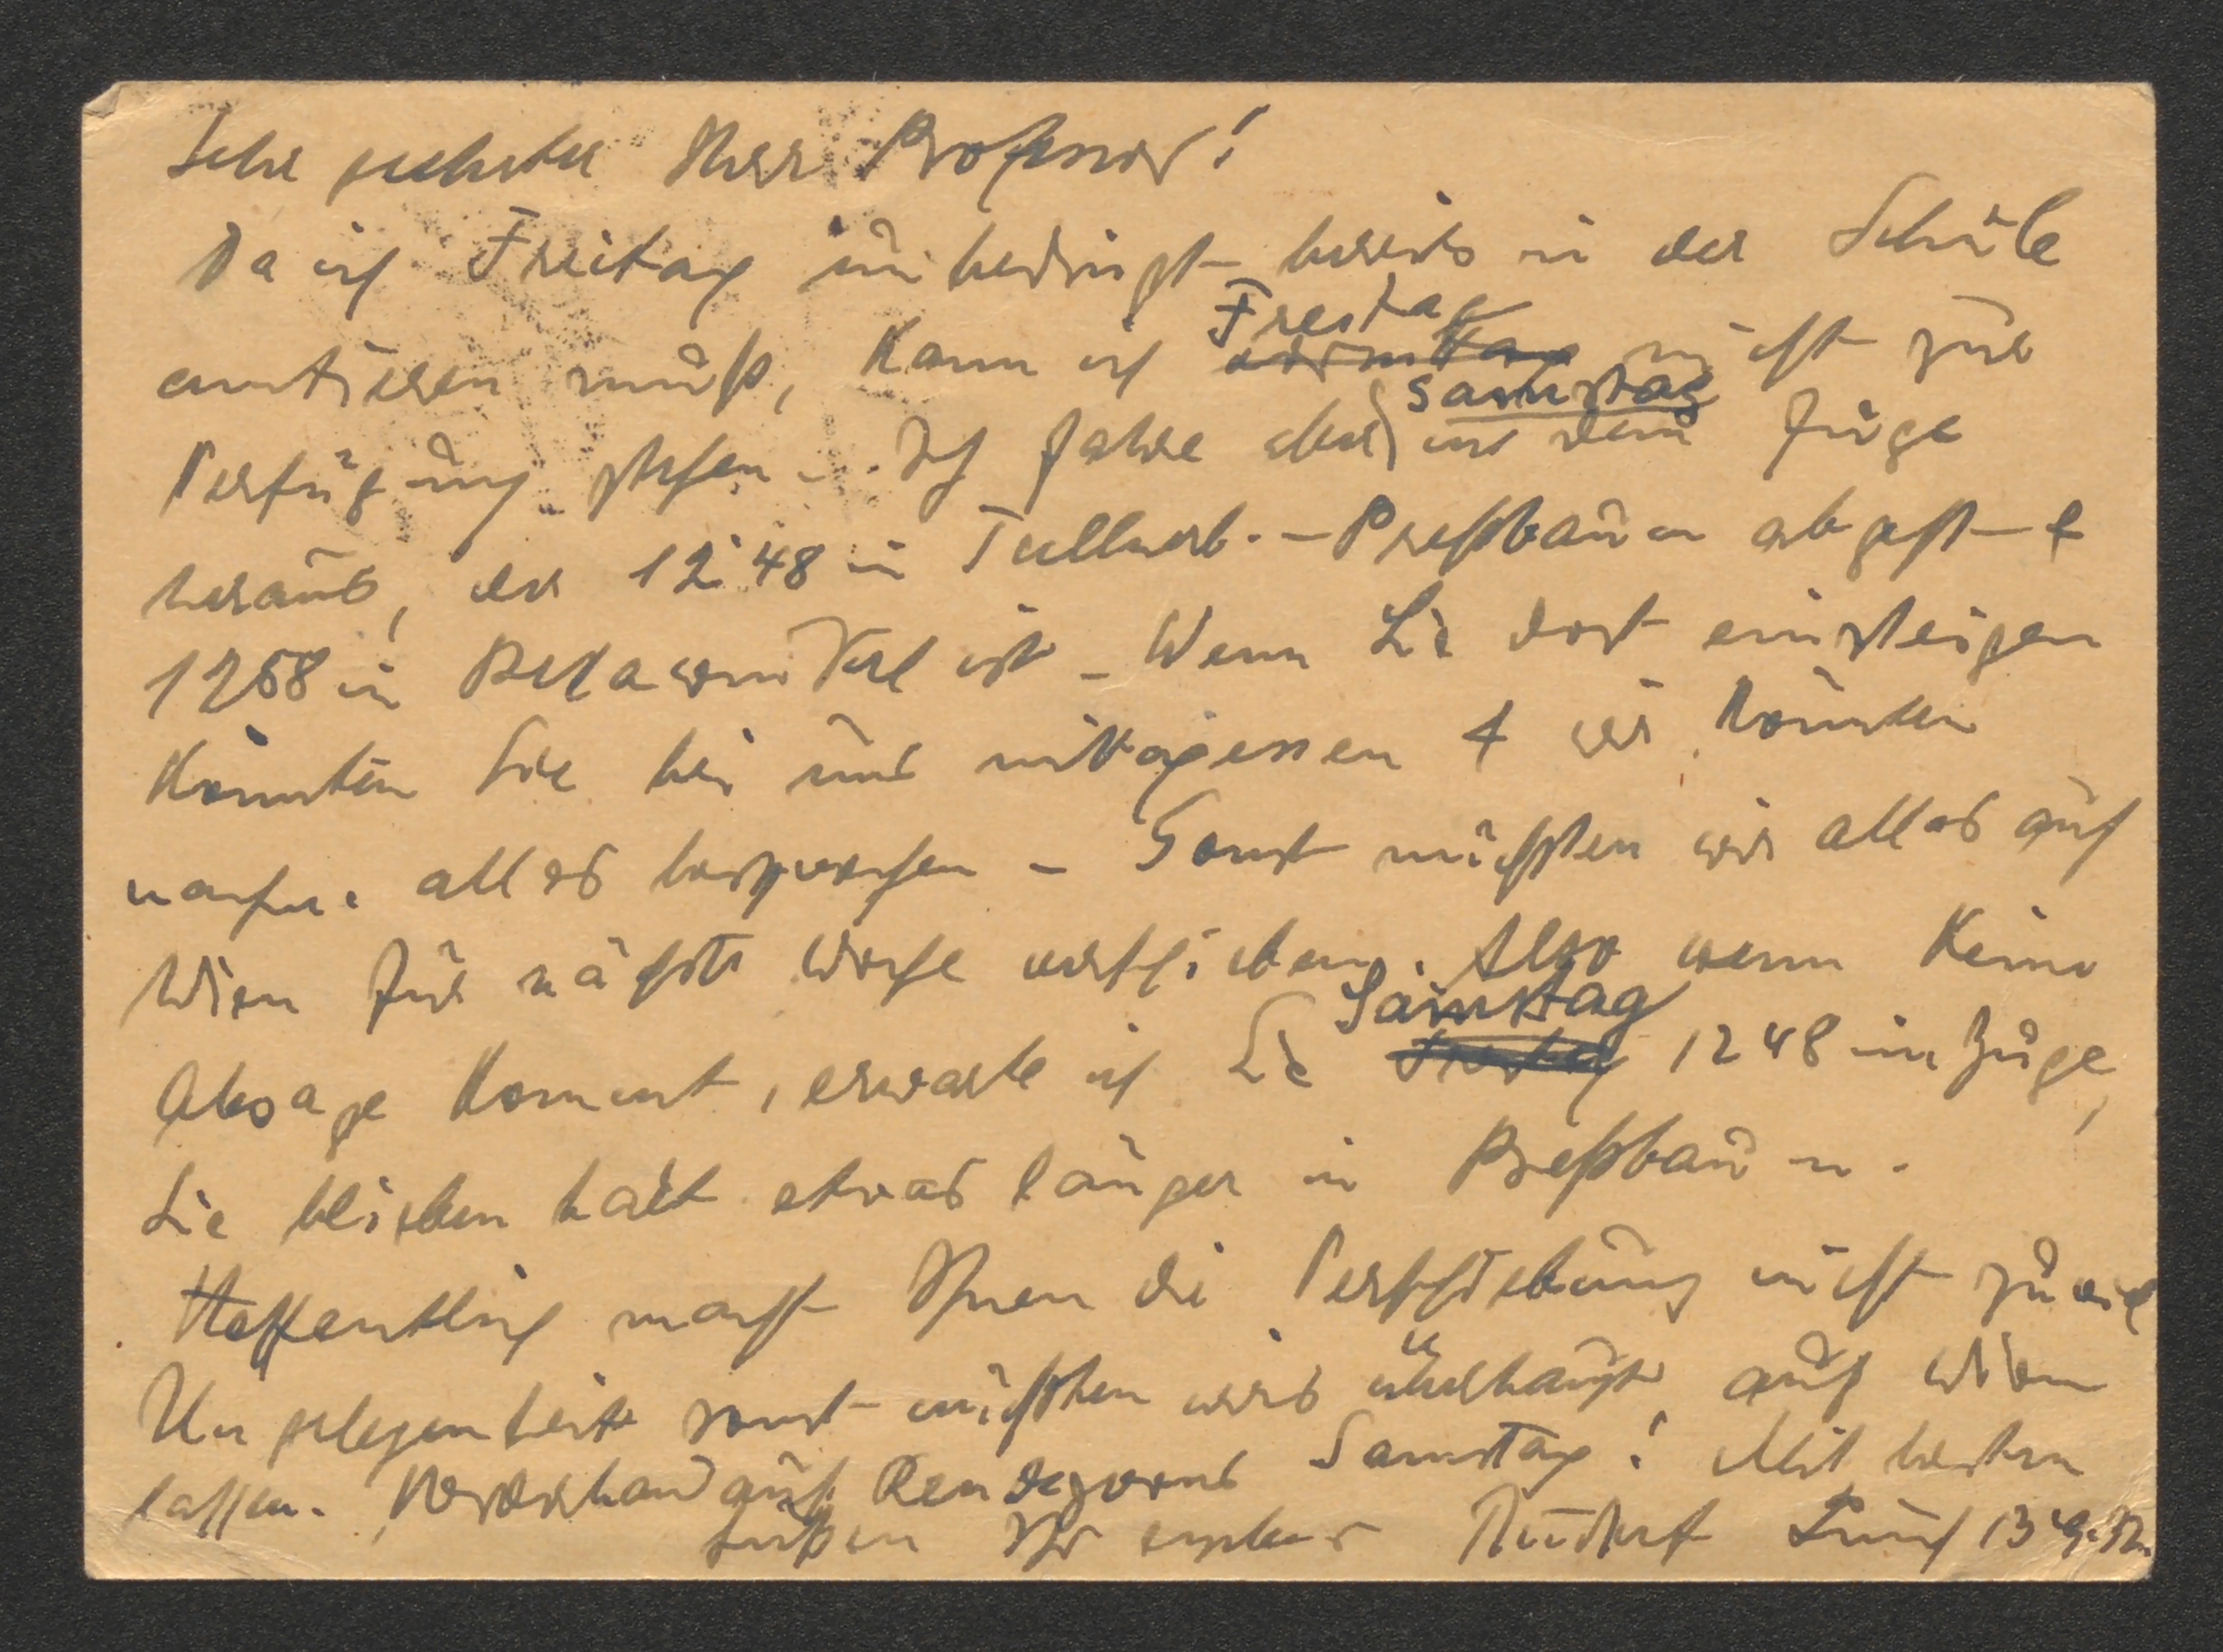 Sehr geehrter Herr Professor!
Da ich Freitag unbedingt bereits in der Schule
amtieren muß, kann ich Freitag nicht zur
Verfügung stehen. Ich fahre aber Samstag mit dem Zuge
heraus, der 12 48 in Tullnerb.-Preßbaum abgeht &
1258 in Rekawinkel ist – Wenn Sie dort einsteigen
könnten Sie bei uns mittagessen & wir könnten
nachm. alles besprechen – Sonst müßten wir alles auf
Wien für nächste Woche verschieben. Also wenn keine
Absage kommt, erwarte ich Sie Samstag 12 48 im Zuge,
Sie bleiben halt etwas länger in Preßbaum.
Hoffentlich macht Ihnen die Verschiebung nicht zu viel
Ungelegenheit sonst müßten wirs überhaupt auf Wien
lassen. Vorderhand auf Rendezvous Samstag! Mit besten
Grüßen Ihr ergebener 13 4. 32.